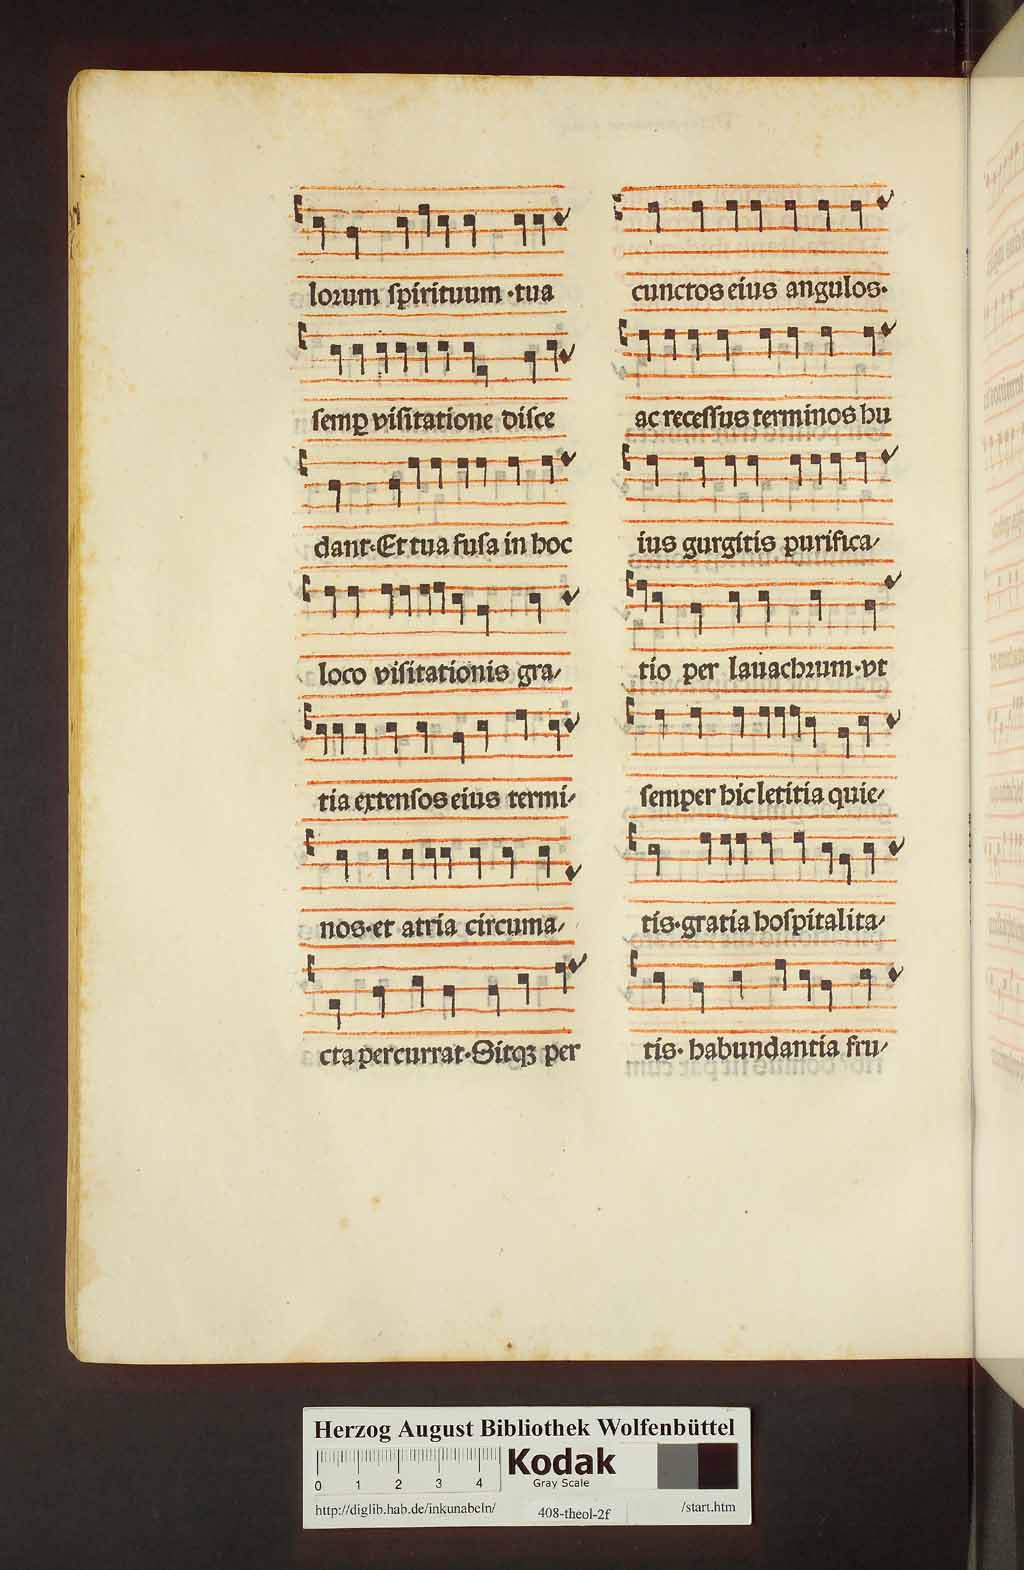 lorum spirituum ·tua
semp̱ visitatione disce
dant·Et tua fusa in hoc
loco visitationis gra/
tia extensos eius termi/
nos·et atria circuma/
cta percurrat·Sitqꝫ per
cunctos eius angulos·
ac recessus terminos hu
ius gurgitis purifica/
tio per lauachrum·vt
semper hic letitia quie/
tis·gratia hospitalita/
tis· habundantia fru/
Herzog August Bibliothek Wolfenbüttel
0 1 2 3 4
Kodak
Gray Scale
http://diglib.hab.de/inkunabeln/ 408-theol-2f /start.htm